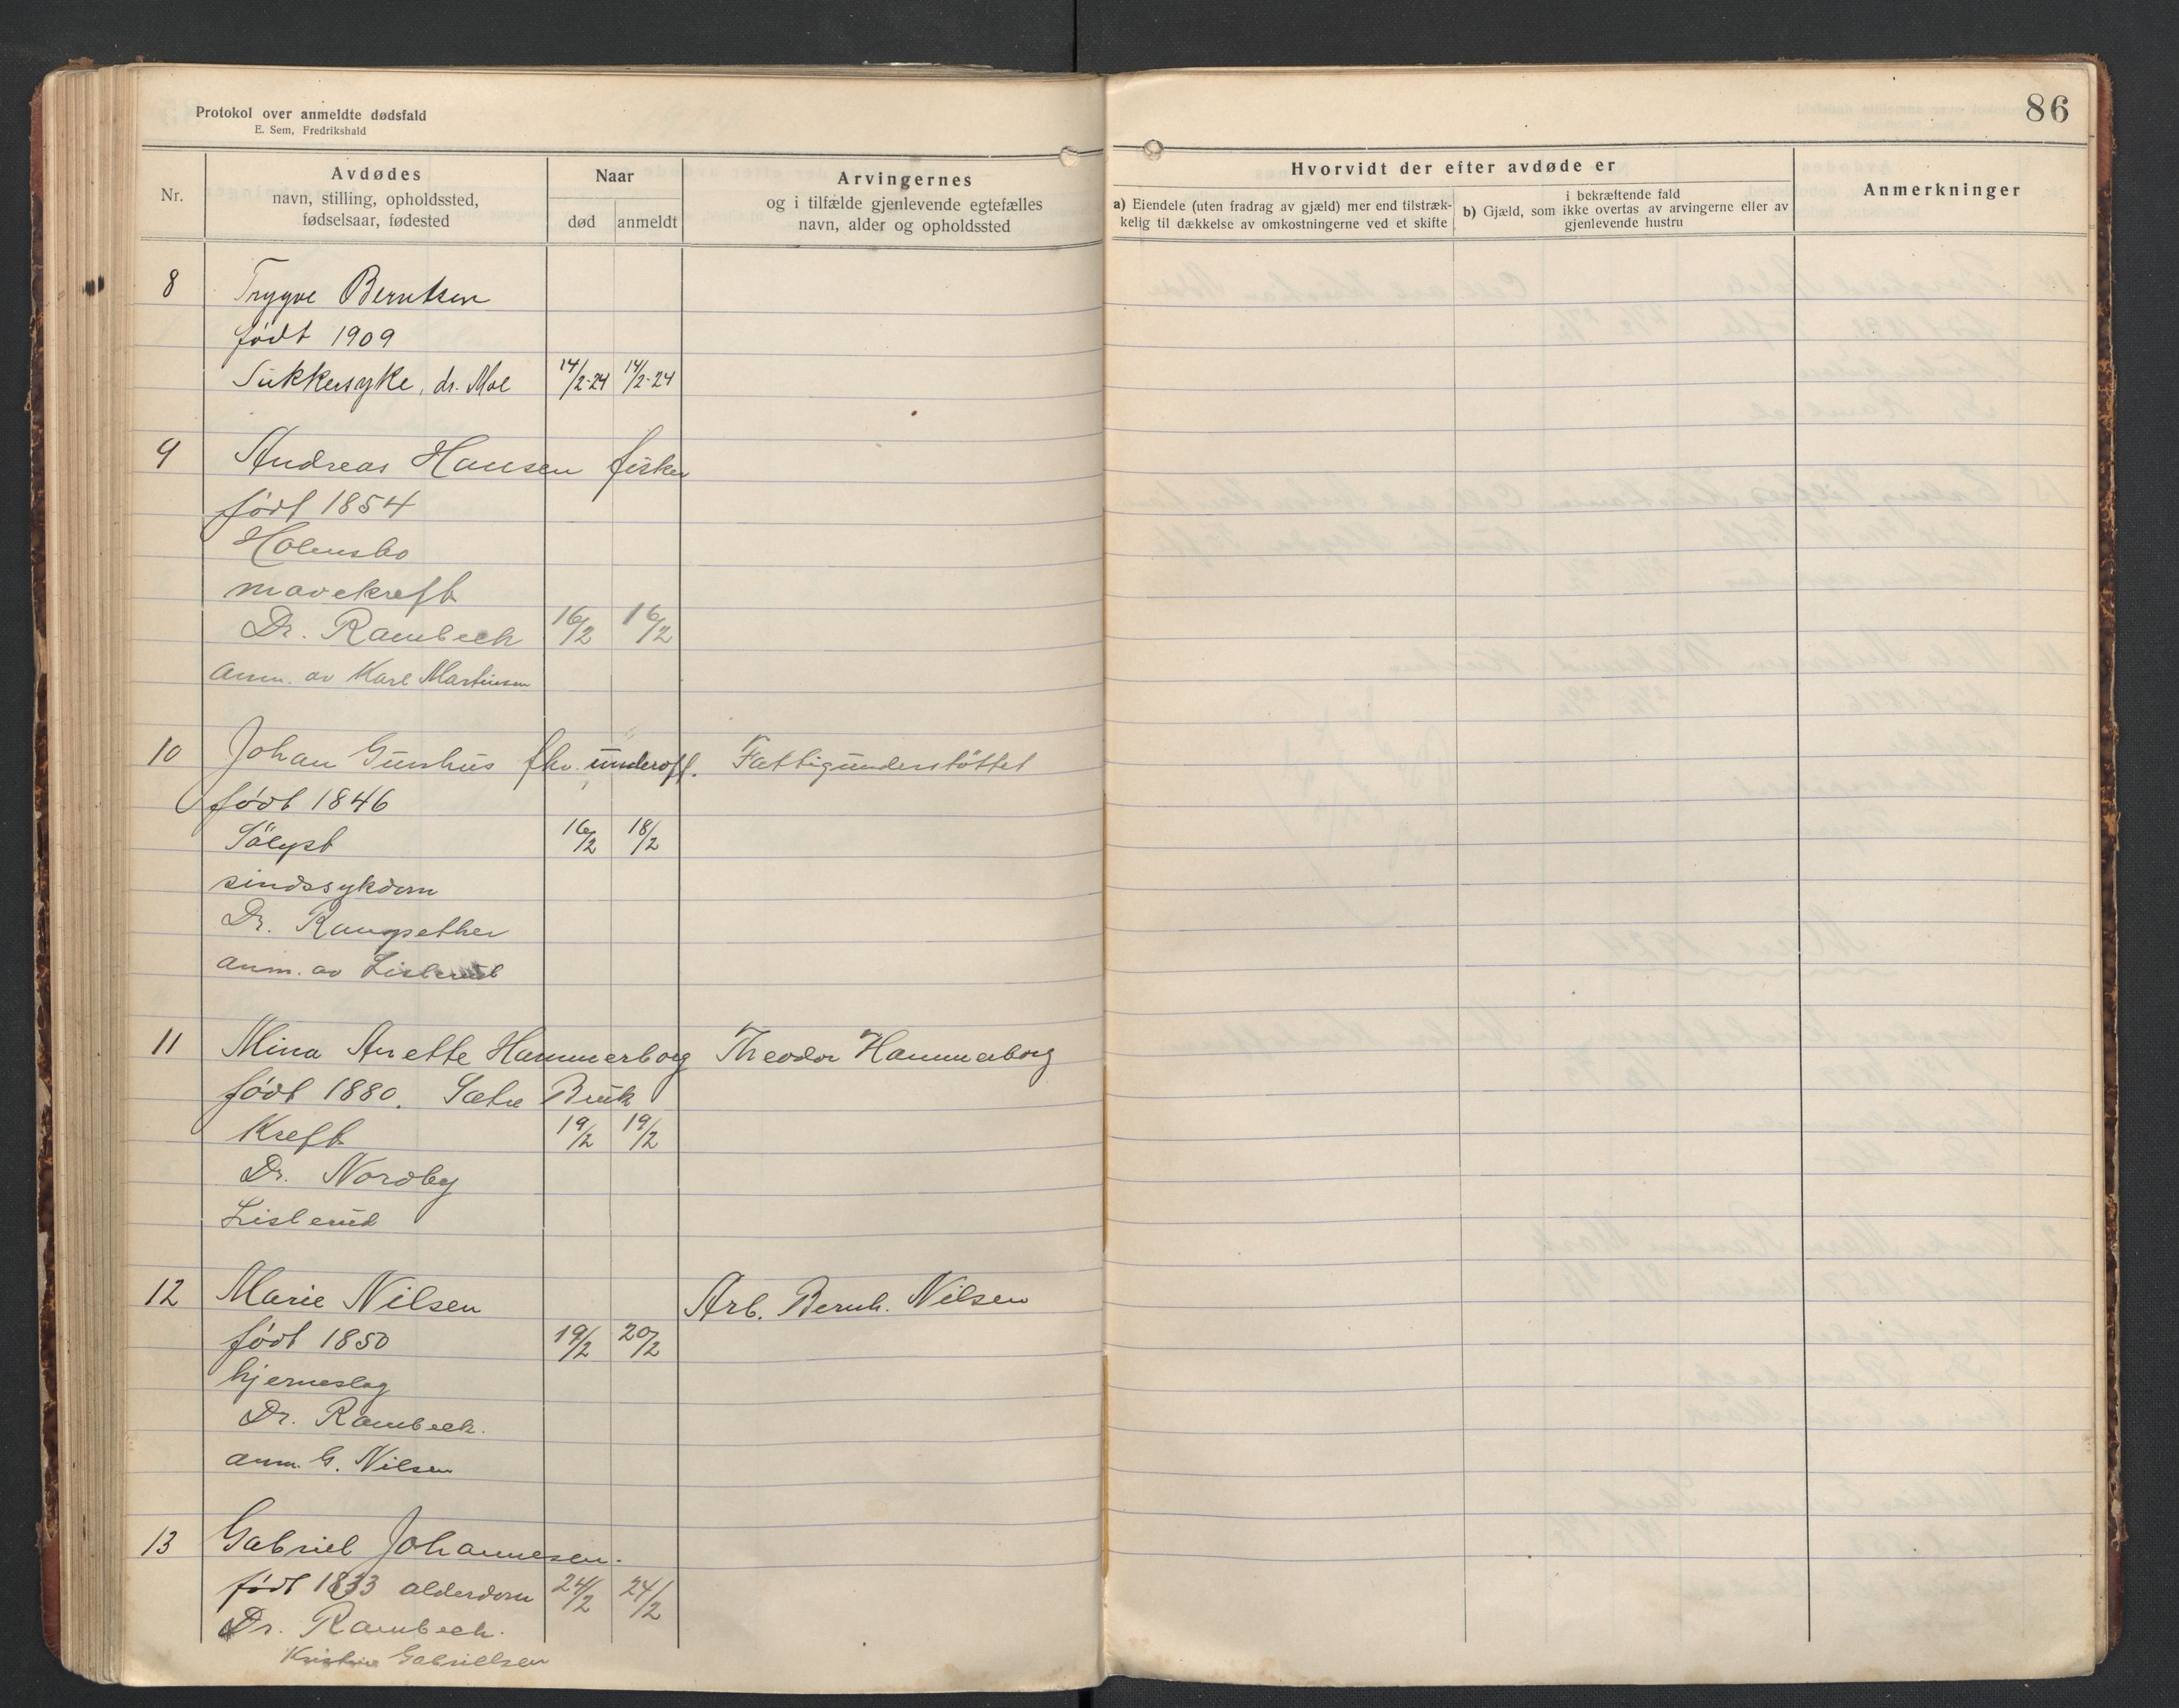 Protokol over anmeldte dødsfald
E. Sem, Fredrikshald
86
Nr.
Avdødes
navn, stilling, opholdssted,
fødselsaar, fødested
Naar
død
anmeldt
Arvingernes
og i tilfælde gjenlevende egtefælles
navn, alder og opholdssted
Hvorvidt der efter avdøde er
a) Eiendele (uten fradrag av gjæld) mer end tilstræk-
kelig til dækkelse av omkostningerne ved et skifte
i bekræftende fald
b) Gjæld, som ikke overtas av arvingerne eller av
gjenlevende hustru
Anmerkninger
8 Trygve Berntsen
født 1909
Sukkersyke, dr. Moe 14/2-24 14/2-24
9 Andreas Hansen fisker
født 1854
Holmsbo
mavekreft
Dr. Rambech 16/2 16/2
anm. av Karl Martinsen
10 Johan Gunhus fhv. underoff. Fattigunderstøttet
født 1846
Sölyst 16/2 18/2
sindssykdom
Dr. 
anm. av Lislerud
11 Mina Anette Hammerborg Theodor Hammerborg
født 1880. Sætre Bruk
Kreft 19/2 19/2
Dr. Nordby
Lislerud
12 Marie Nilsen Arb. Bernh. Nilsen
født 1850 19/2 20/2
hjerneslag
Dr. Rambech.
anm. G. Nilsen
13 Gabriel Johannesen.
født 1833 alderdom 24/2 24/2
Dr. Rambech.
Gabrielsen